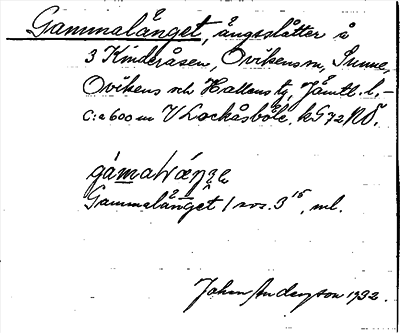 Gammalänget, ängsslåtter å
3 Kinderåsen, Ovikens sn, Sunne,
Ovikens och Hallens tg, Jämtl. l,–
C:a 600 m V Lockåsböle. k G 72 NO.
Gammalänget / avs. 3
Johan Anderzson 1932.